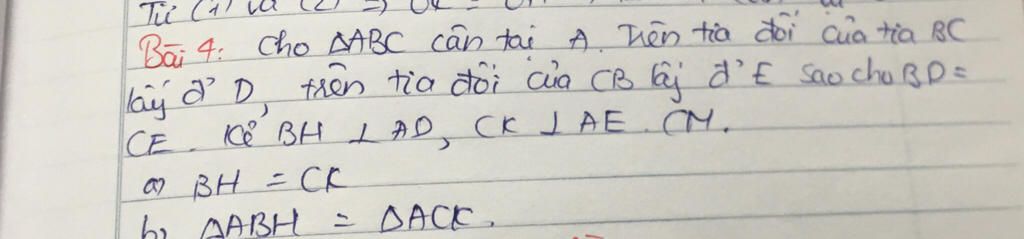 Từ (1) và (2) =>
Bài 4: Cho ΔABC cân tại A. Trên tia đối của tia BC
lấy đ' D, trên tia đối của CB lấy đ' E sao cho BD =
CE. Kẻ BH ⊥ AD, CK ⊥ AE. CM.
a) BH = CK
b) ΔABH = ΔACK.